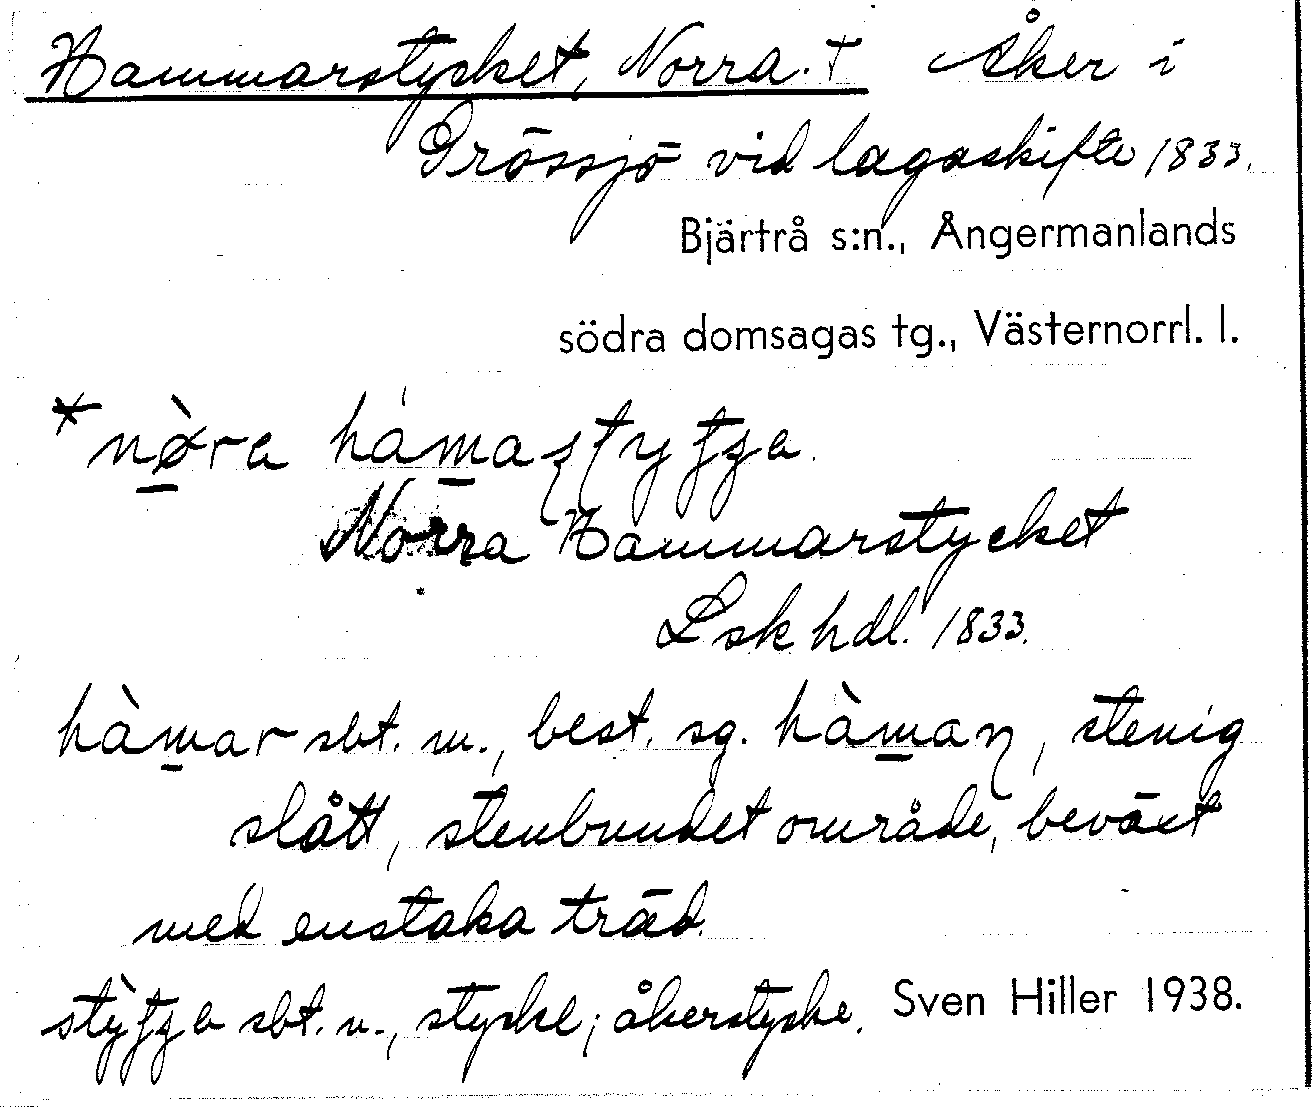 Hammarstycket, Norra. † Åker i
Grössjö vid lagaskifte 1833.
Bjärtrå s:n., Ångermanlands
södra domsagas tg., Västernorrl. l.
Norra Hammarstycket
Lsk hdl. 1833.
hàmar sbt. m., best. sg. hàman, stenig
slått, stenbundet område, beväxt
med enstaka träd.
sbt. n., stycke; åkerstycke. Sven Hiller 1938.